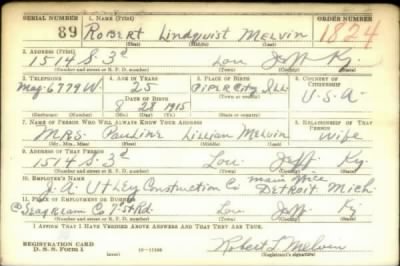 SERIAL NUMBER 1. NAME (Print) ORDER NUMBER
89 ROBERT Lindquist MELVIN 1824
(First) (Middle) (Last)
2. ADDRESS (Print)
1514 S. 3d Lou Jeff Ky.
(Number and street or R. F. D. number) (Town) (County) (State)
3. TELEPHONE 4. AGE IN YEARS 5. PLACE OF BIRTH 6. COUNTRY OF CITIZENSHIP
Mag. 6779W. 25 PIPER CITY, Ill.
DATE OF BIRTH (Town or county)
8 28 1915 U.S.A.
(Exchange) (Number) (Mo.) (Day) (Yr.) (State or country)
7. NAME OF PERSON WHO WILL ALWAYS KNOW YOUR ADDRESS 8. RELATIONSHIP OF THAT PERSON
MRS. Pauline Lillian Melvin Wife
(Mr., Mrs., Miss) (First) (Middle) (Last)
9. ADDRESS OF THAT PERSON
1514 S. 3d Lou. Jeff Ky
(Number and street or R. F. D. number) (Town) (County) (State)
10. EMPLOYER'S NAME main office
J. A. Utley Construction Co Detroit Mich.
11. PLACE OF EMPLOYMENT OR BUSINESS
@ Seagram Co 7th St Rd. Lou Jeff Ky.
(Number and street or R. F. D. number) (Town) (County) (State)
I AFFIRM THAT I HAVE VERIFIED ABOVE ANSWERS AND THAT THEY ARE TRUE.
REGISTRATION CARD
D. S. S. Form 1 Robert L. Melvin
(Registrant's signature)